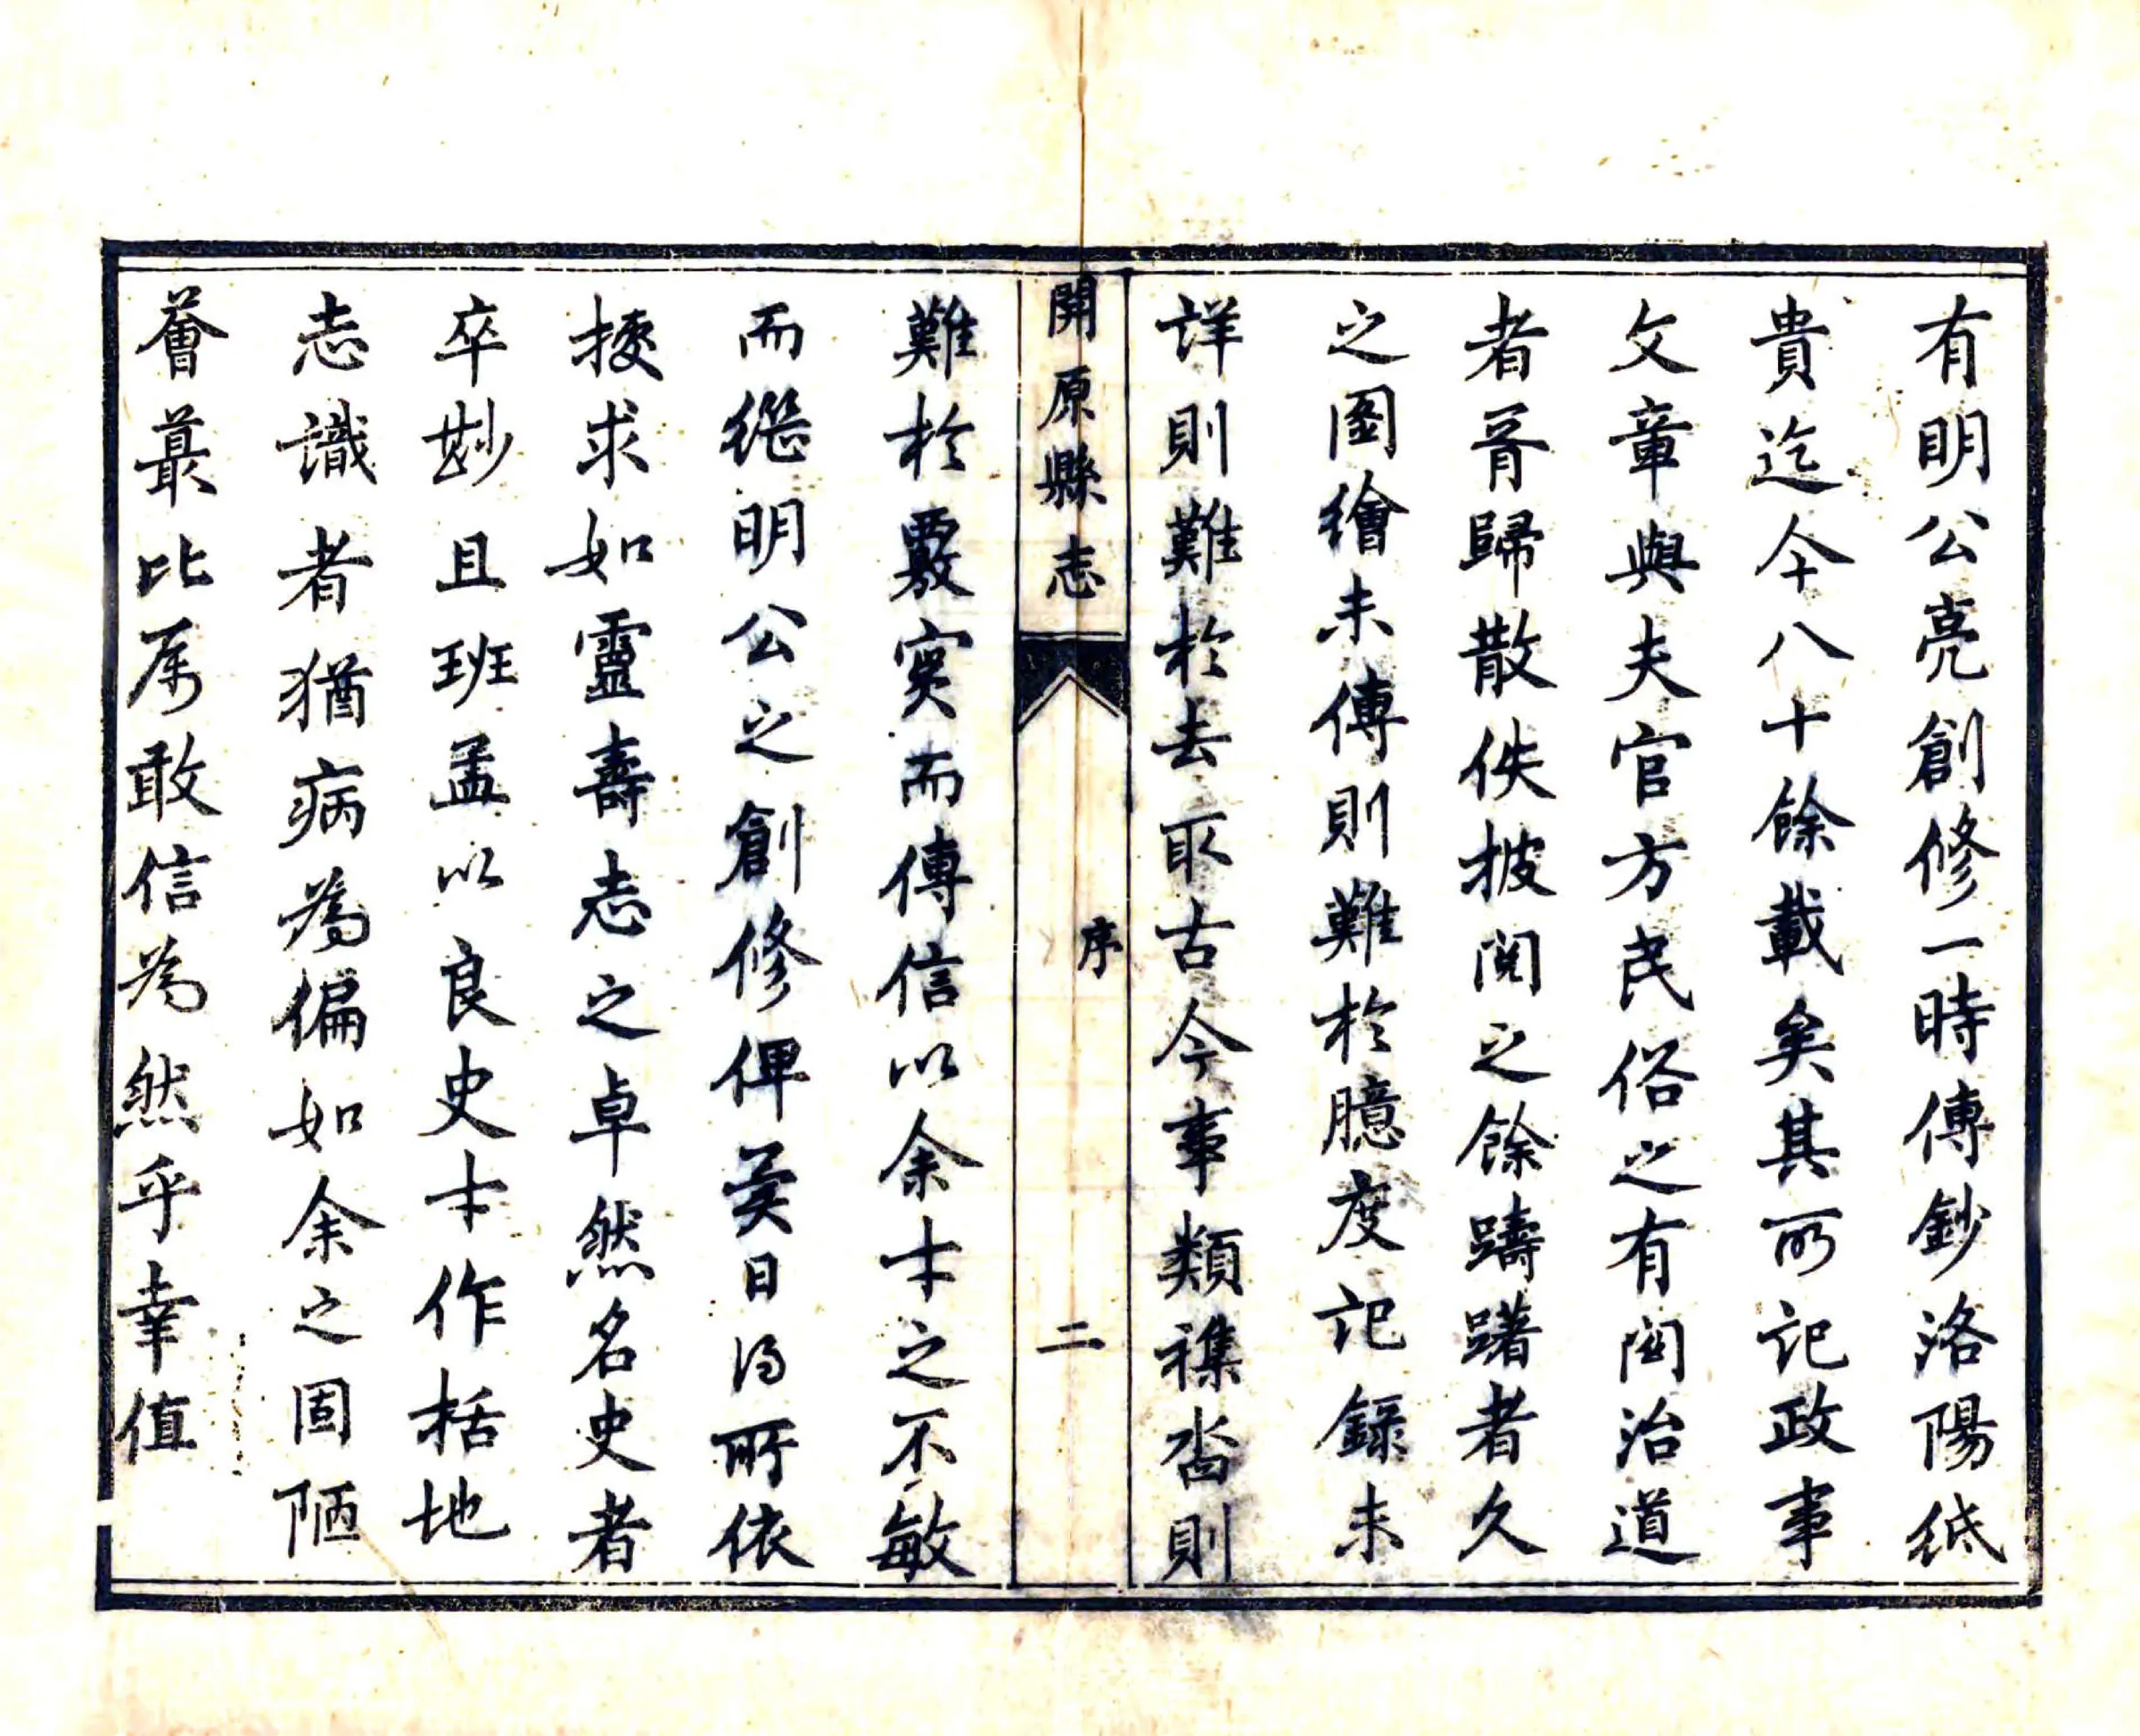 有明公亮創修一時傳鈔洛陽紙
貴迄今八十餘載矣其所記政事
文章與夫官方民俗之有関治道
者胥歸散佚披閱之餘躊躇者久
之圖繪未傳則難於臆度記錄未
詳則難於去取古今事類襍沓則
開原縣志
序
二
難於覈實而傳信以余才之不敏
而繼明公之創修俾異日得所依
據求如靈壽志之卓然名史者
卒尠且班孟以良史才作括地
志識者猶病為偏如余之固陋
薈蕞比屬敢信為然乎幸值